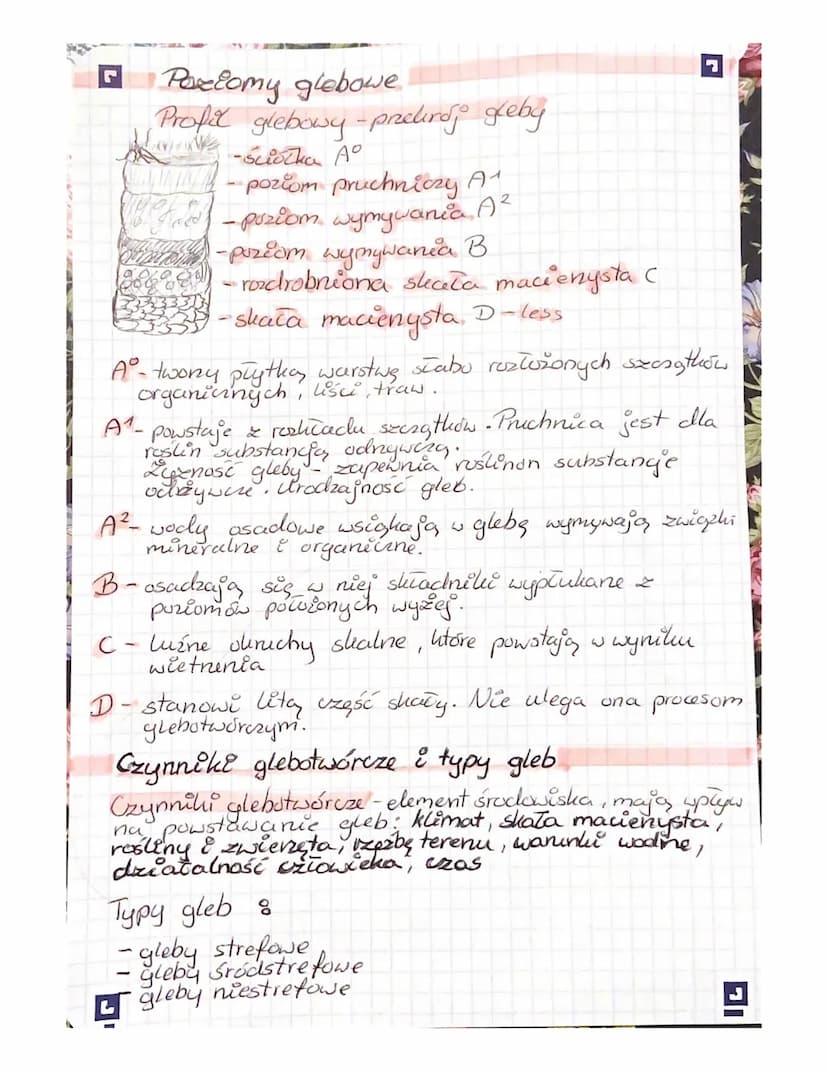 Poziomy glebowe
Profil glebowy - przekrój gleby
- ściółka A⁰
- poziom pruchniczy A¹
- poziom wymywania A²
- poziom wymywania B
- rozdrobniona skała macienysta C
- skała macienysta D - less
A⁰ - tworzy płytką warstwę słabo rozłożonych szczątków
organicznych, liści, traw.
A¹ - powstaje z rozkładu szczątków. Pruchnica jest dla
roślin substancją odżywczą.
Żyzność gleby - zapewnia roślinon substancje
odżywcze. Urodzajność gleb.
A² - wody osadowe wsiąkają w glebę wymywają związki
mineralne i organiczne.
B - osadzają się w niej składniki wypłukane z
poziomów położonych wyżej.
C - luźne okruchy skalne, które powstają w wyniku
wietrzenia
D - stanowi litą część skały. Nie ulega ona procesom
glebotwórczym.
Czynniki glebotwórcze i typy gleb
Czynniki glebotwórcze - element środowiska, mają wpływ
na powstawanie gleb: klimat, skała macienysta,
rośliny i zwierzęta, rzeźbę terenu, warunki wodne,
działalność człowieka, czas
Typy gleb :
- gleby strefowe
- gleby śródstrefowe
- gleby niestrefowe